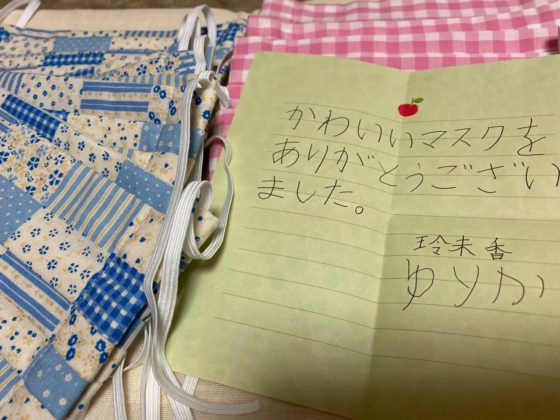 かわいいマスクを
ありがとうござい
ました。
玲未香
ゆりか